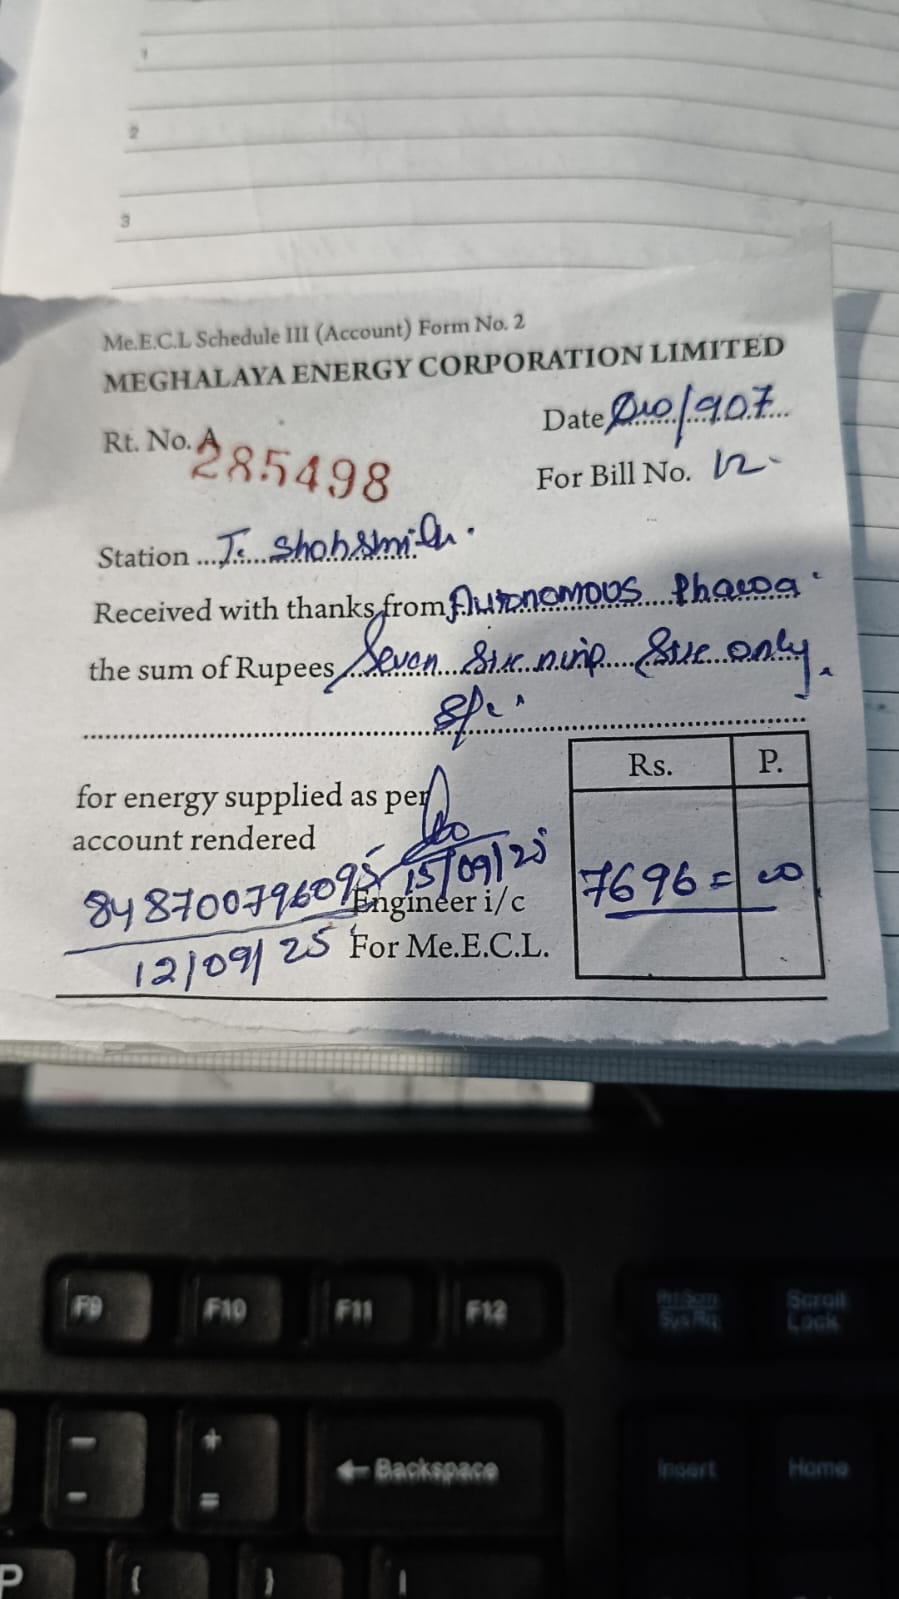 1
2
3
Me.E.C.L Schedule III (Account) Form No. 2
MEGHALAYA ENERGY CORPORATION LIMITED
Rt. No. A 285498
Date /907
For Bill No. 12
Station
Received with thanks from Autonomous
the sum of Rupees Seven Six nine Six only
for energy supplied as per
account rendered
Rs. P.
7696 = 00
848700796095
15/09/25
Engineer i/c
12/09/25
For Me.E.C.L.
F9 F10 F11 F12 Prt Scrn Scroll
SysRq Lock
- + ← Backspace Insert Home
- =
P { } |